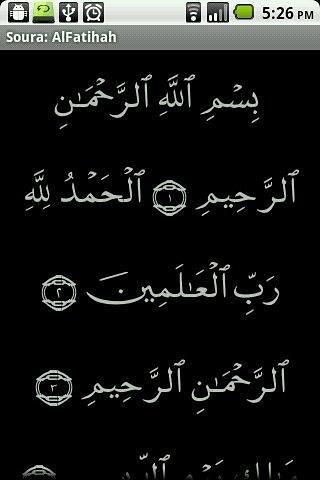 5:26 PM
Soura: AlFatihah
بِسْمِ ٱللَّهِ ٱلرَّحْمَـٰنِ
ٱلرَّحِيمِ ١ ٱلْحَمْدُ لِلَّهِ
رَبِّ ٱلْعَـٰلَمِينَ ٢
ٱلرَّحْمَـٰنِ ٱلرَّحِيمِ ٣